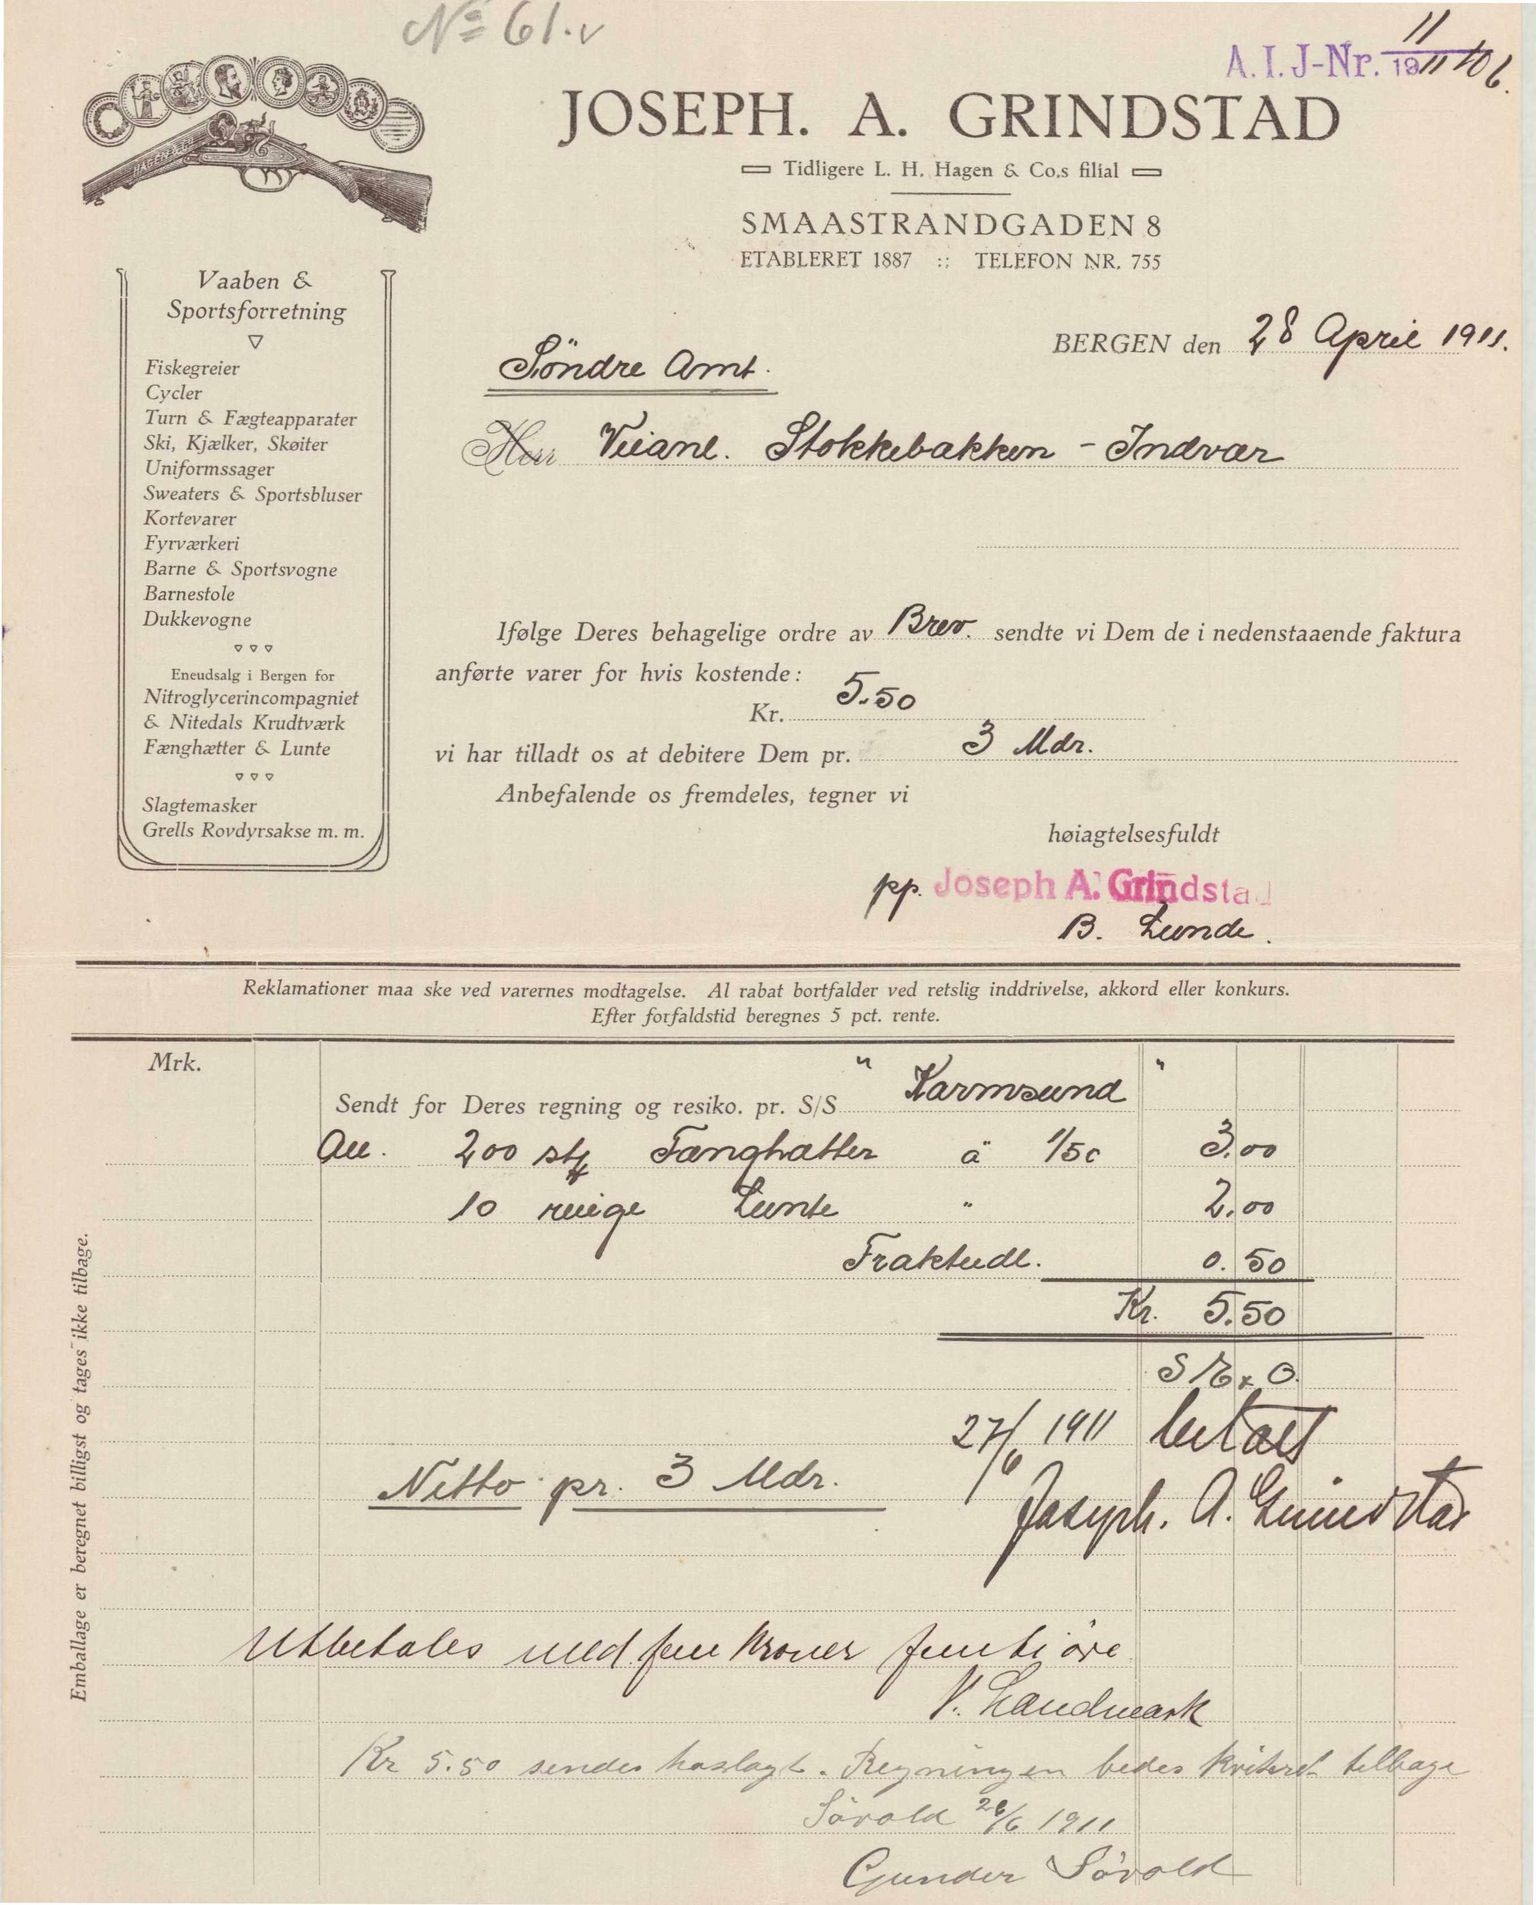 No 61. v
A. I. J-Nr. 11/1911 406.
HAGEN & Co
JOSEPH. A. GRINDSTAD
Tidligere L. H. Hagen & Co.s filial
SMAASTRANDGADEN 8
ETABLERET 1887 :: TELEFON NR. 755
Vaaben &
Sportsforretning
Fiskegreier
Cycler
Turn & Fægteapparater
Ski, Kjælker, Skøiter
Uniformssager
Sweaters & Sportsbluser
Kortevarer
Fyrværkeri
Barne & Sportsvogne
Barnestole
Dukkevogne
Eneudsalg i Bergen for
Nitroglycerincompagniet
& Nitedals Krudtværk
Fænghætter & Lunte
Slagtemasker
Grells Rovdyrsakse m. m.
BERGEN den 28 April 1911.
Söndre Amt.
Herr Veianl. Stokkebakken - Indvær
Ifølge Deres behagelige ordre av Brev. sendte vi Dem de i nedenstaaende faktura
anførte varer for hvis kostende:
Kr. 5.50
vi har tilladt os at debitere Dem pr. 3 Mdr.
Anbefalende os fremdeles, tegner vi
høiagtelsesfuldt
pp. Joseph A. Grindstad
B. Lunde.
Reklamationer maa ske ved varernes modtagelse. Al rabat bortfalder ved retslig inddrivelse, akkord eller konkurs.
Efter forfaldstid beregnes 5 pct. rente.
Mrk.
Sendt for Deres regning og resiko. pr. S/S " Karmsund "
An. 200 stk Fænghætter à 1/50 3.00
10 ringe Lunte " 2.00
Fraktudl. 0.50
Kr. 5.50
S. E. & O.
27/6 1911 betalt
Netto pr. 3 Mdr.
Joseph. A. Grindstad
Emballage er beregnet billigst og tages ikke tilbage.
Utbetales med fem kroner femti øre
V. Landmark
Kr 5.50 sendes vedlagt. Regningen bedes kvitteret tilbage
Sörvold 26/6 1911
Gunder Sörvold